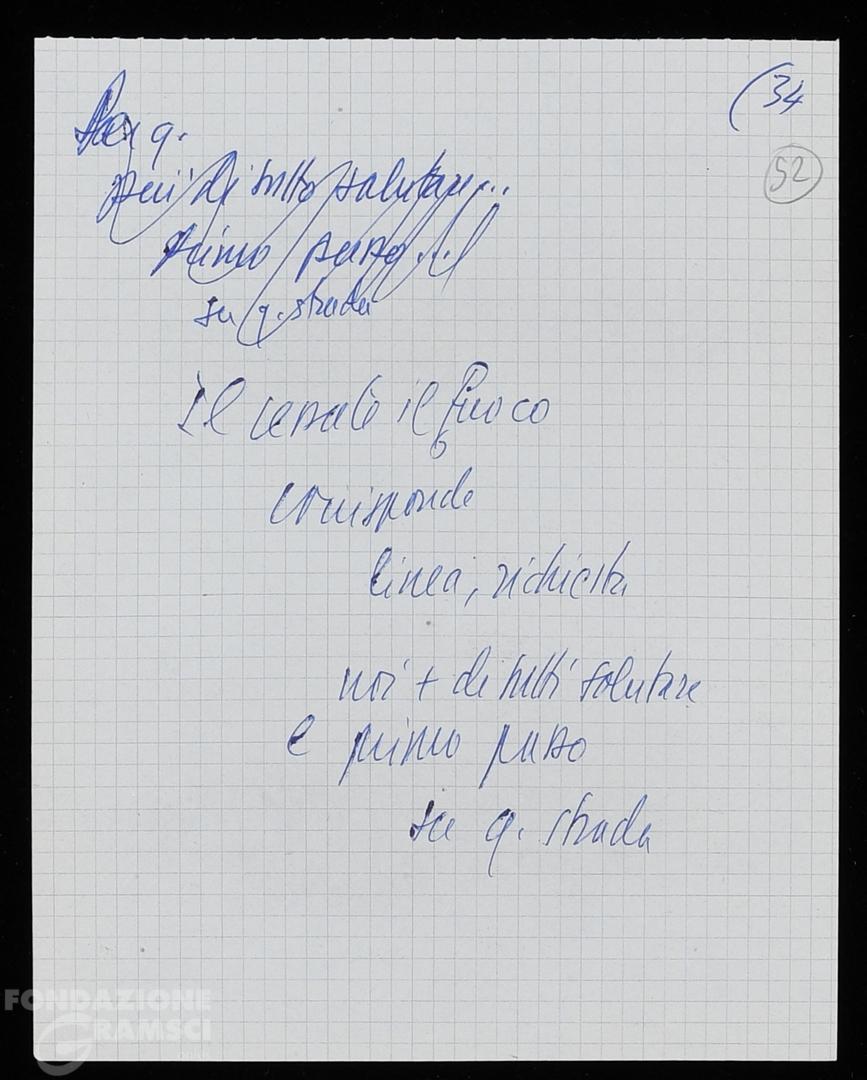 (34
52
Per q.
più di tutto salutare...
primo passo...
su q. strada
Il cessate il fuoco
corrisponde
linea, richiesta
noi + di tutti salutare
e primo passo
su q. strada
FONDAZIONE
GRAMSCI